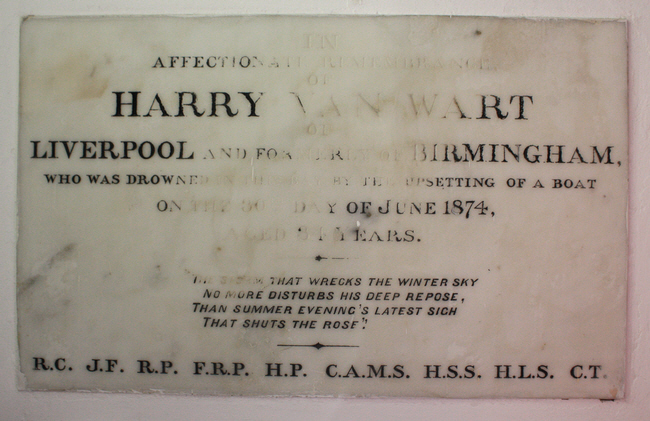 IN
AFFECTIONATE REMEMBRANCE
OF
HARRY VAN WART
OF
LIVERPOOL AND FORMERLY OF BIRMINGHAM,
WHO WAS DROWNED IN THE BAY BY THE UPSETTING OF A BOAT
ON THE 30 DAY OF JUNE 1874,
AGED YEARS.
THE STORM THAT WRECKS THE WINTER SKY
NO MORE DISTURBS HIS DEEP REPOSE,
THAN SUMMER EVENING'S LATEST SIGH
THAT SHUTS THE ROSE".
R.C. J.F. R.P. F.R.P. H.P. C.A.M.S. H.S.S. H.L.S. C.T.